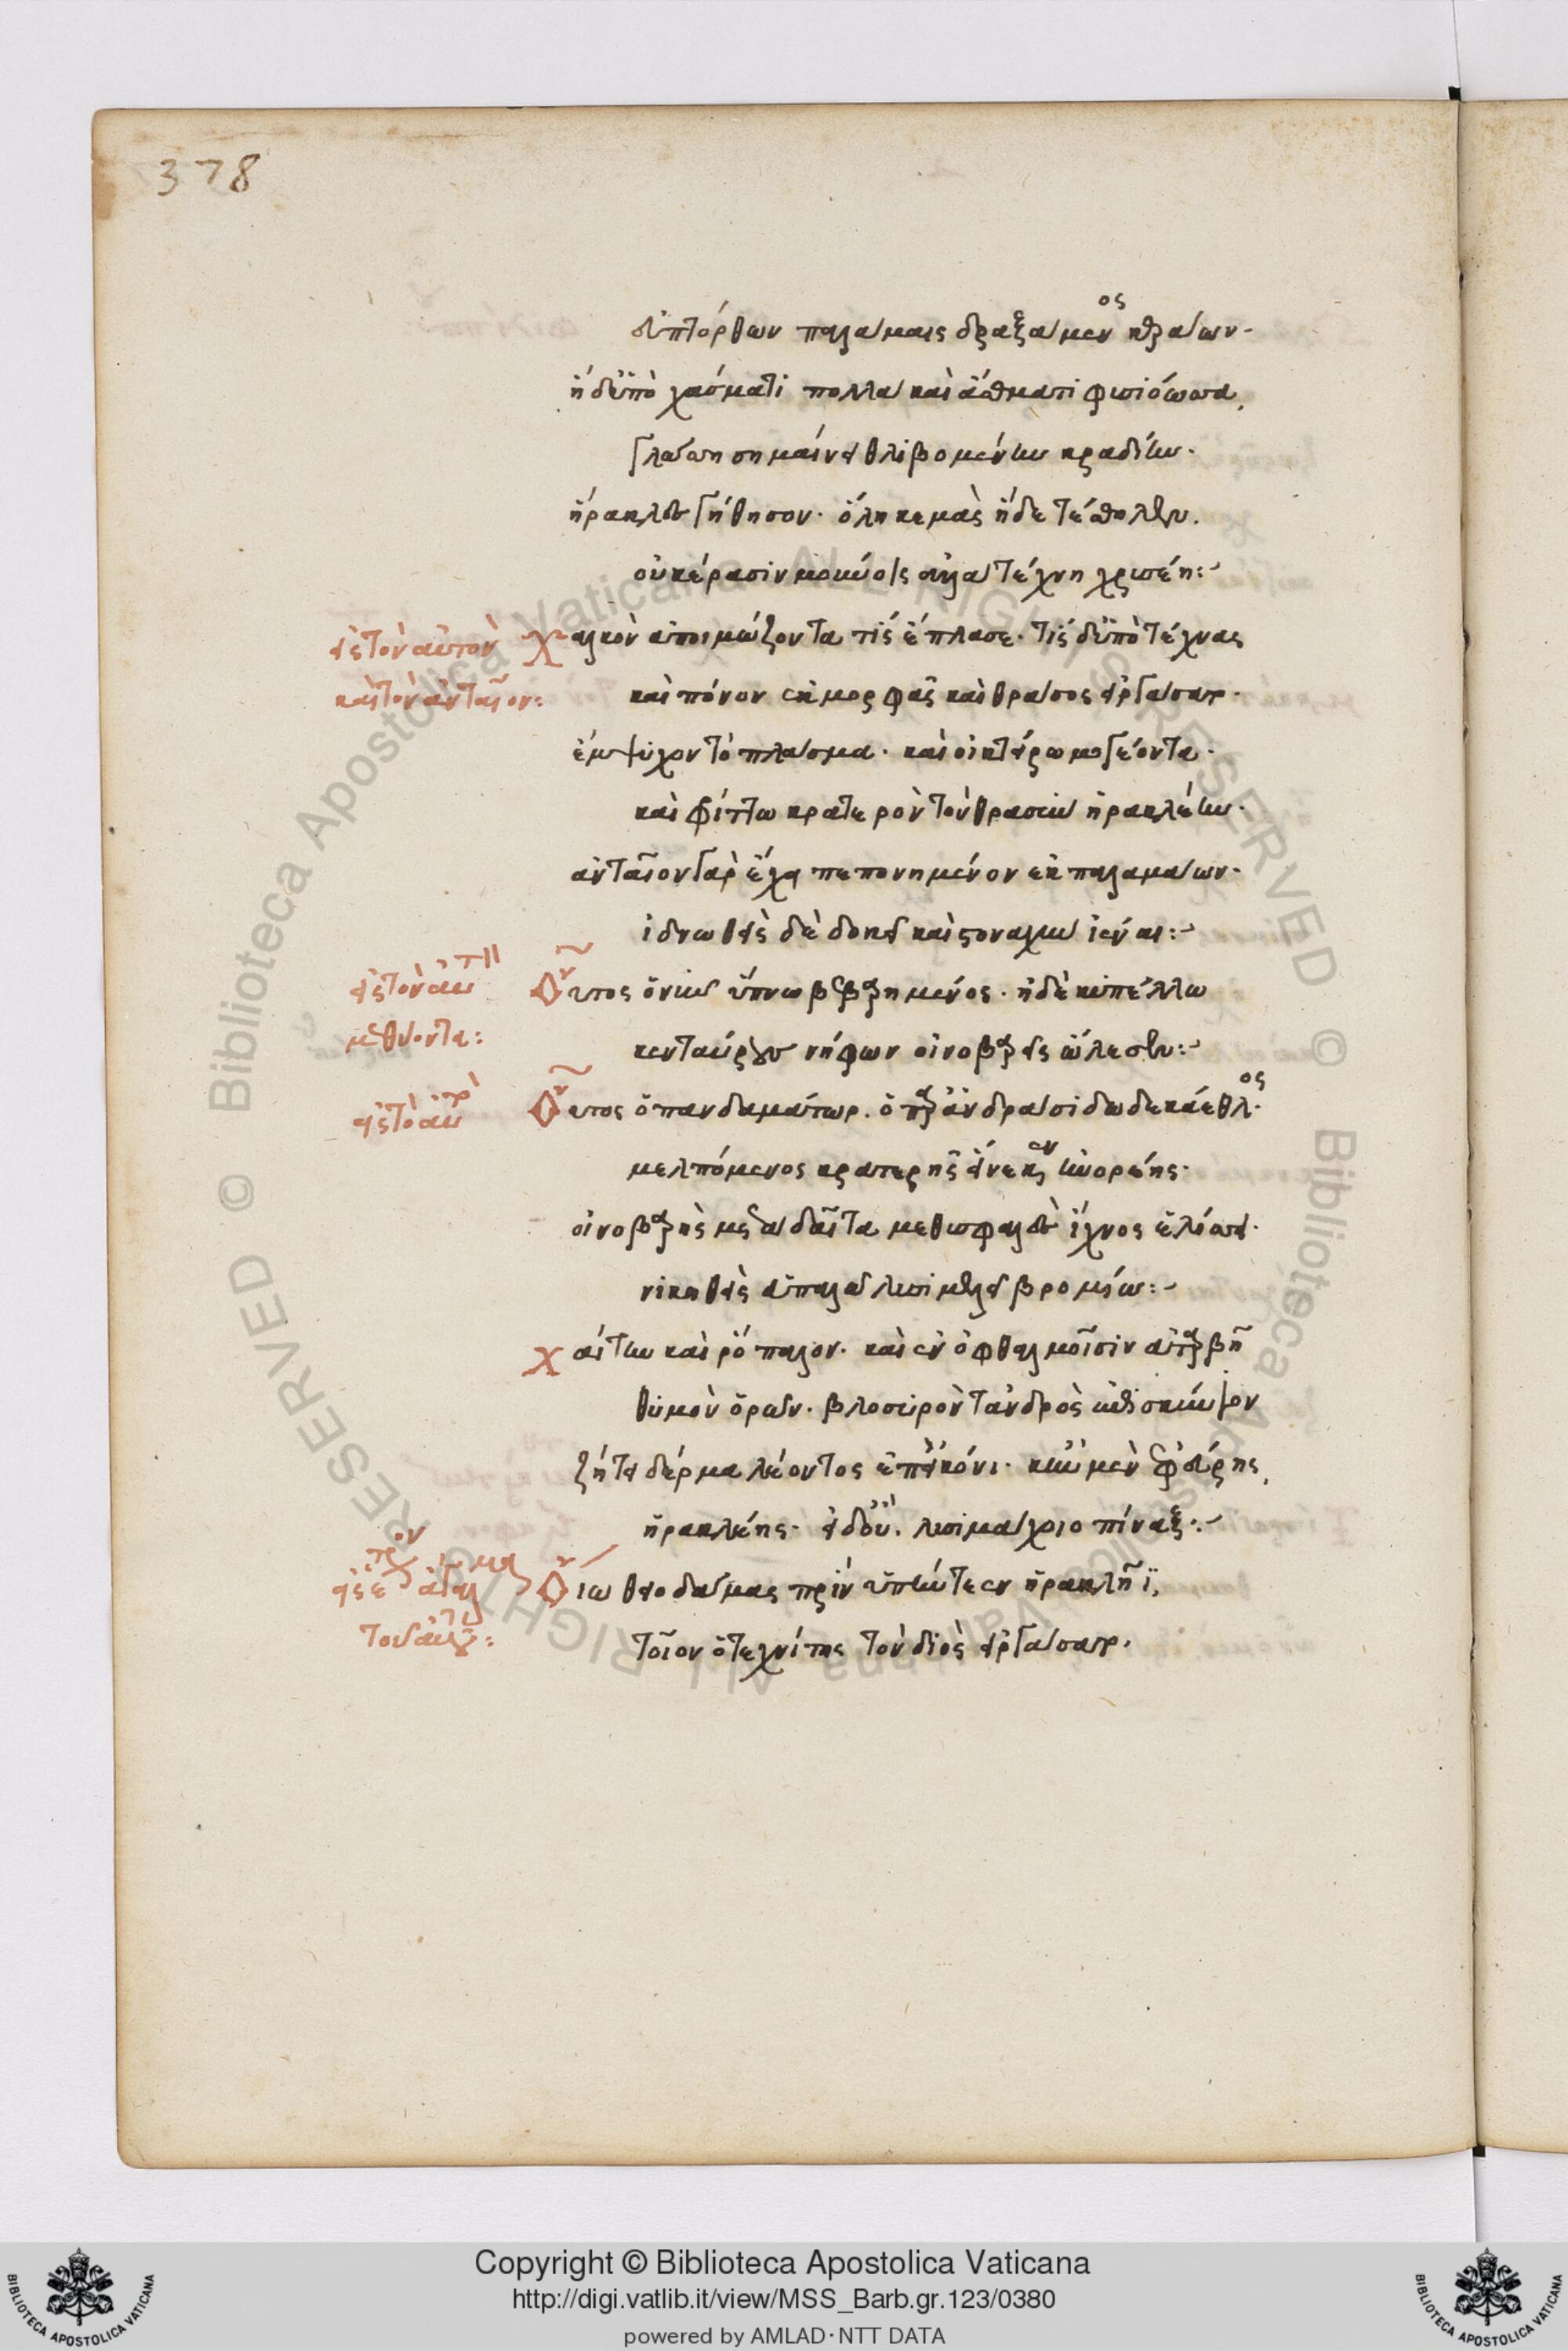 378
εὐπτόρθων παλάμαις δραξάμενος κεράων·
ἡ δ' ὑπὸ χάσματι πολλὰ καὶ ἄσθματι φυσιόωσα,
γλώσση σημαίνει θλιβομένην κραδίην·
ἡράκλεις γήθησον· ὅλη κεμὰς ἥδε τέθηλεν.
οὐ κέρασιν μούνοις ἀλλὰ τέχνη χρυσέη:
εἰς τὸν αὐτὸν
καὶ τὸν ἀνταῖον:
Χαλκὸν ἀποιμώζοντα τίς ἔπλασε· τίς δ' ὑπὸ τέχνας
καὶ πόνον ἐν μορφᾶς καὶ θράσος εἰργάσατο·
ἔμψυχον τὸ πλάσμα· καὶ οἰκτείρω μογέοντα·
καὶ φρίττω κρατερὸν τὸν θρασὺν ἡρακλέην·
ἀνταῖον γὰρ ἔχει πεπονημένον ἐκ παλαμάων·
ἰδνωθεὶς δὲ δοκεῖ καὶ στοναχὴν ἱέναι:
εἰς τὸν αὐτὸν
μεθύοντα:
Οὗτος ὁ νῦν ὕπνω βεβαρημένος· ἠδὲ κυπέλλω
κενταύρους νήφων οἰνοβαρεῖς ὤλεσεν:
εἰς τὸν αὐτὸν
Οὗτος ὁ πανδαμάτωρ. ὁ παρ' ἀνδράσι δωδεκάεθλος
μελπόμενος κρατερῆς εἵνεκεν ἠνορέης·
οἰνοβαρὴς μετὰ δαῖτα μεθυσφαλὲς ἴχνος ἑλίσσει·
νικηθεὶς ἁπαλῶ λυσιμελεῖ βρομίω:
χαίτην καὶ ῥόπαλον· καὶ ἐν ὀφθαλμοῖσιν ἀταρβῆ
θυμὸν ὁρῶν· βλοσυρόν τ' ἀνδρὸς ἐπισκύνιον
ζήτει δέρμα λέοντος ἐπ' εἰκόνι· κἢν μὲν ἐφεύρης,
ἡρακλέης· εἰ δ' οὔ. λυσιμάχοιο πίναξ:
εἰς ἕτερον ἄγαλμα
τοῦ αὐτοῦ:
Οἵω θειοδάμας πρὶν ὑπήντεεν ἡρακλῆϊ,
τοῖον ὁ τεχνίτης τὸν διὸς εἰργάσατο.
Copyright © Biblioteca Apostolica Vaticana
http://digi.vatlib.it/view/MSS_Barb.gr.123/0380
powered by AMLAD·NTT DATA